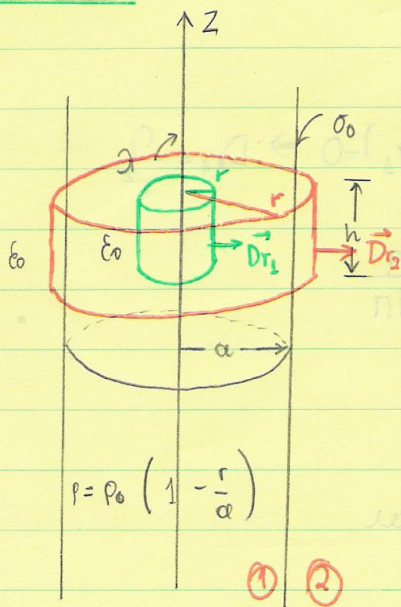 Z
λ
σ₀
r
r
h
ε₀
ε₀
D⃗r₁
D⃗r₂
a
ρ = ρ₀ (1 - r/a)
① ②